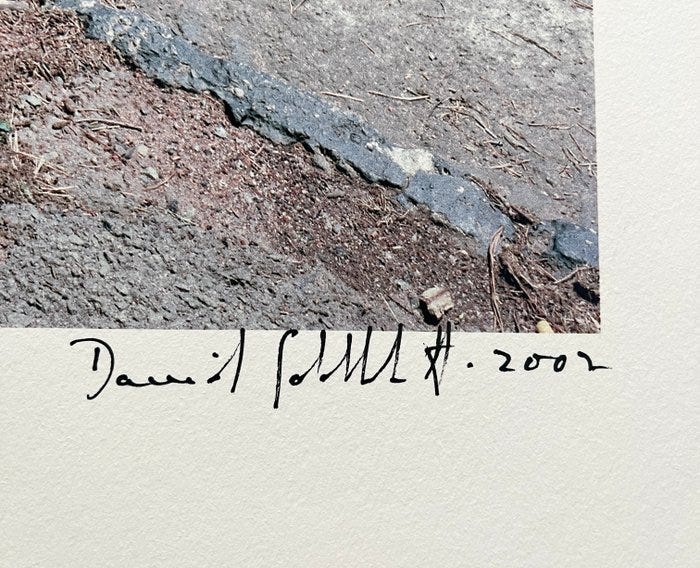 David Goldblatt. 2002